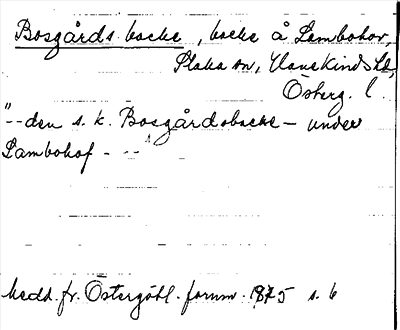 Bosgårds backe, backe å Lambohov,
Slaka sn, Hanekinds hd,
Österg. l.
"--den s. k. Bosgårdsbacke - under
Lambohof - --"
Medd. fr. Östergötl. fornm. 1975 s. 6